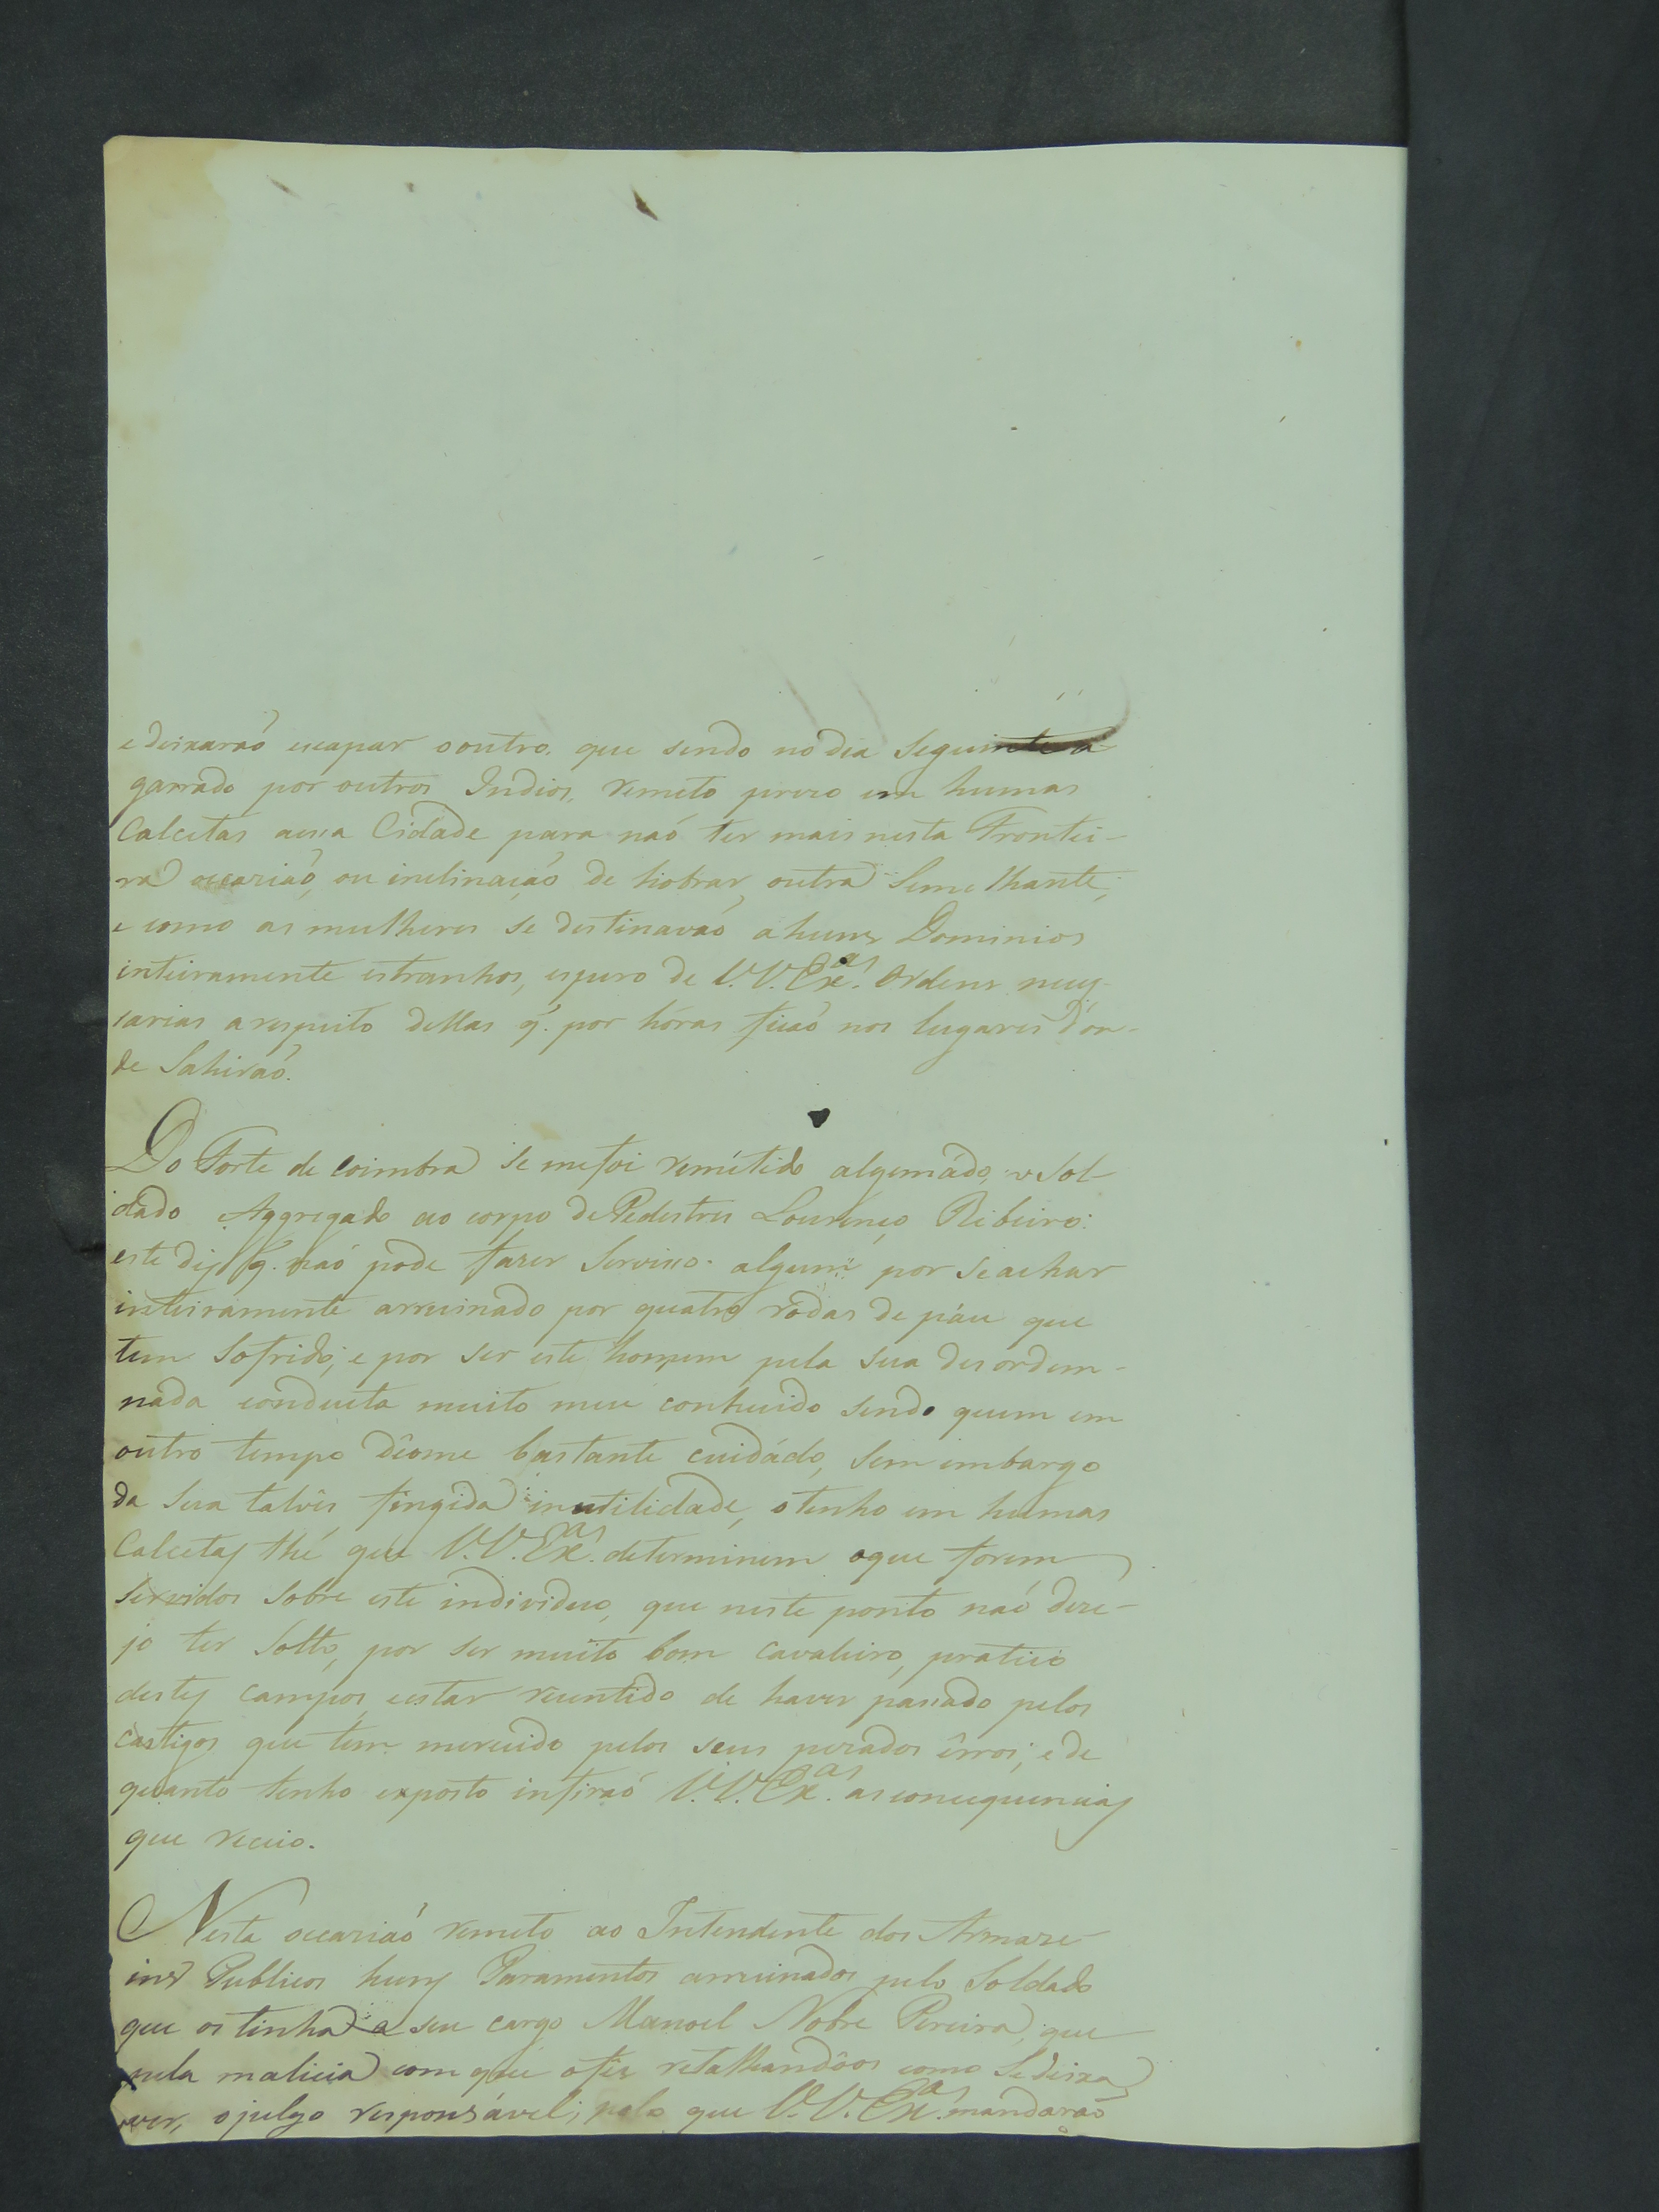 e deixaraó escapar o outro. que sendo no dia seguinte a
garrado por outros Indios, remeto prezo em humas
Calcetas aessa Cidade para naó ter mais nesta Frontei-
ra occaziaó, ou inclinaçaó de hobrar outra Seme lhante;
e como as mulheres se destinavaó a huns Dominios
inteiramente estranhos, espero de V.V. Ex.as Ordens neces-
sarias a respeito dellas q. por hóras ficaó nos lugares d'on-
de Sahiraó.
Do Forte de Coimbra se me foi remétido algemádo, o Sol-
dado Aggregado ao corpo de Pedestres Lourenço Ribeiro:
este diz q. naó pode fazer Servisso algum por se achar
inteiramente arruinado por quatro ródas de páu que
tem Sofrido; e por ser este homem pela sua desordem-
nada conducta muito meu conhecido sendo quem em
outro tempo dêome bastante cuidádo, Sem embargo
da Sua talvês fingida inutilidade, o tenho em humas
Calcetas thé que V.V. Ex.as determinem o que forem
Servidos Sobre este individuo, que neste ponto naó deze-
jo ter Sólto, por ser muito bom Cavaleiro, pratico
destes campos, e estar recentido de haver passado pelos
castigos que tem merecido pelos seus pezados êrros; e de
quanto tenho exposto infiraó V.V. Ex.as as consequencias
que receio.
Nesta occaziaó remeto ao Intendente dos Armaze-
ins Publicos huns Paramentos arruinados pelo Soldado
que os tinha a seu cargo Manoel Nobre Pereira, que
pela malicia com que o fêz retalhandôos como Se deixa
ver, o julgo responsável; pelo que V.V. Ex.as mandaraó